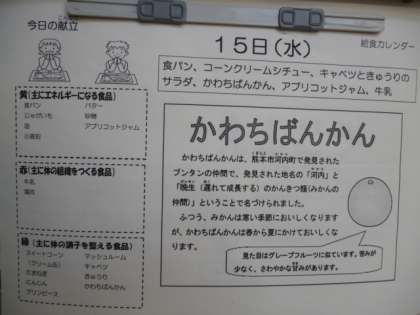 今日の献立
15日(水)
給食カレンダー
食パン、コーンクリームシチュー、キャベツときゅうりの
サラダ、かわちばんかん、アプリコットジャム、牛乳
黄(主にエネルギーになる食品)
食パン　バター
じゃがいも　砂糖
油　アプリコットジャム
小麦粉
赤(主に体の組織をつくる食品)
牛乳
鶏肉
緑(主に体の調子を整える食品)
スイートコーン　マッシュルーム
(クリーム缶)　キャベツ
たまねぎ　きゅうり
にんじん　かわちばんかん
グリンピース
かわちばんかん
かわちばんかんは、熊本市河内町で発見された
ブンタンの仲間で、発見された地名の「河内」と
「晩生(遅れて成長する)のかんきつ類(みかんの
仲間)」ということで名づけられました。
ふつう、みかんは寒い季節においしくなります
が、かわちばんかんは春から夏にかけておいしくな
ります。
見た目はグレープフルーツに似ています。苦みが
少なく、さわやかな甘みがあります。